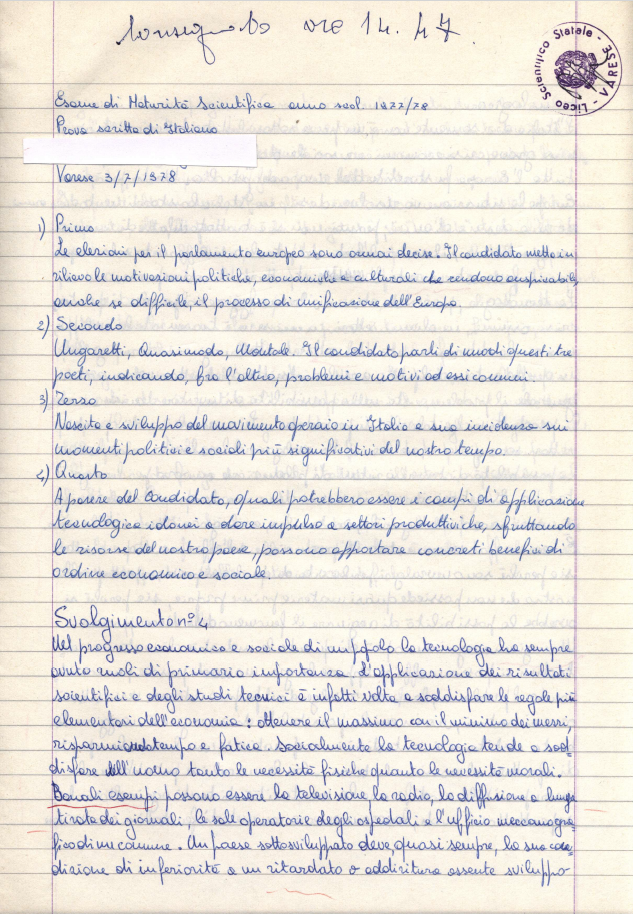 Consegnato ore 14.47
Liceo Scientifico Statale - VARESE -
Esame di Maturità Scientifica anno scol. 1977/78
Prova scritta di Italiano
Varese 3/7/1978
1) Primo
Le elezioni per il parlamento europeo sono ormai decise. Il candidato metta in
rilievo le motivazioni politiche, economiche e culturali che rendono auspicabile,
anche se difficile, il processo di unificazione dell'Europa.
2) Secondo
Ungaretti, Quasimodo, Montale. Il candidato parli di uno di questi tre
poeti, indicando, fra l'altro, problemi e motivi ad essi comuni.
3) Terzo
Nascita e sviluppo del movimento operaio in Italia e sua incidenza sui
momenti politici e sociali più significativi del nostro tempo.
4) Quarto
A parere del candidato, quali potrebbero essere i campi di applicazione
tecnologica idonei a dare impulso a settori produttivi che, sfruttando
le risorse del nostro paese, possano apportare concreti benefici di
ordine economico e sociale.
Svolgimento n° 4
Nel progresso economico e sociale di un popolo la tecnologia ha sempre
avuto ruoli di primaria importanza. L'applicazione dei risultati
scientifici e degli studi tecnici è infatti volta a soddisfare le regole più
elementari dell'economia: ottenere il massimo con il minimo dei mezzi,
risparmiando tempo e fatica. Socialmente la tecnologia tende a sod
disfare dell'uomo tanto le necessità fisiche quanto le necessità morali.
Banali esempi possono essere la televisione la radio, la diffusione a lunga
tirata dei giornali, le sale operatorie degli ospedali e l'ufficio meccanogra
fico di un comune. Un paese sottosviluppato deve, quasi sempre, la sua con
dizione di inferiorità a un ritardato o addiritura assente sviluppo